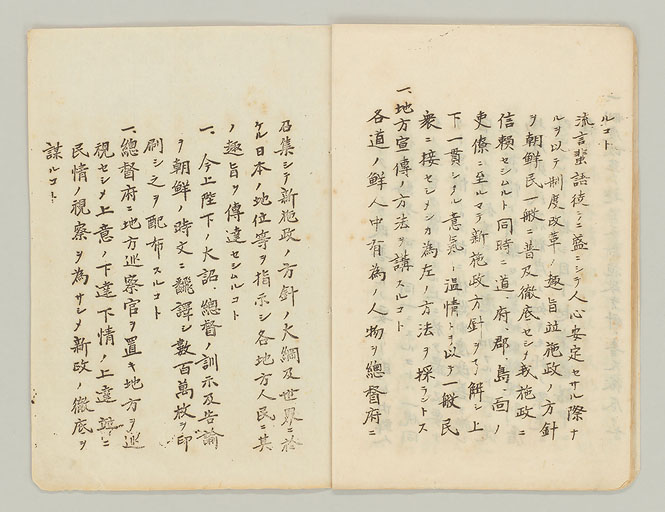 ルコト
流言蜚語徒ラニ盛ニシテ人心安定セサル際ナ
ルヲ以テ制度改革ノ趣旨竝施政ノ方針
ヲ朝鮮民一般ニ普及徹底セシメ我施政ニ
信賴セシムルト同時ニ道、府、郡、島、面ノ
吏僚ニ至ルマテ新施政方針ヲ了解シ上
下一貫シタル意氣ト溫情トヲ以テ一般民
衆ニ接セシメンカ為左ノ方法ヲ採ラントス
一、地方宣傳ノ方法ヲ講スルコト
各道ノ鮮人中有為ノ人物ヲ總督府ニ
召集シテ新施政ノ方針ノ大綱及世界ニ於
ケル日本ノ地位等ヲ指示シ各地方人民ニ其
ノ趣旨ヲ傳達セシムルコト
一、今上陛下ノ大詔、總督ノ訓示及告諭
ヲ朝鮮ノ時文ニ飜譯シ數百萬枚ヲ印
刷シ之ヲ配布スルコト
一、總督府ニ地方巡察官ヲ置キ地方ヲ巡
視セシメ上意ノ下達下情ノ上達並ニ
民情ノ視察ヲ為サシメ新政ノ徹底ヲ
謀ルコト